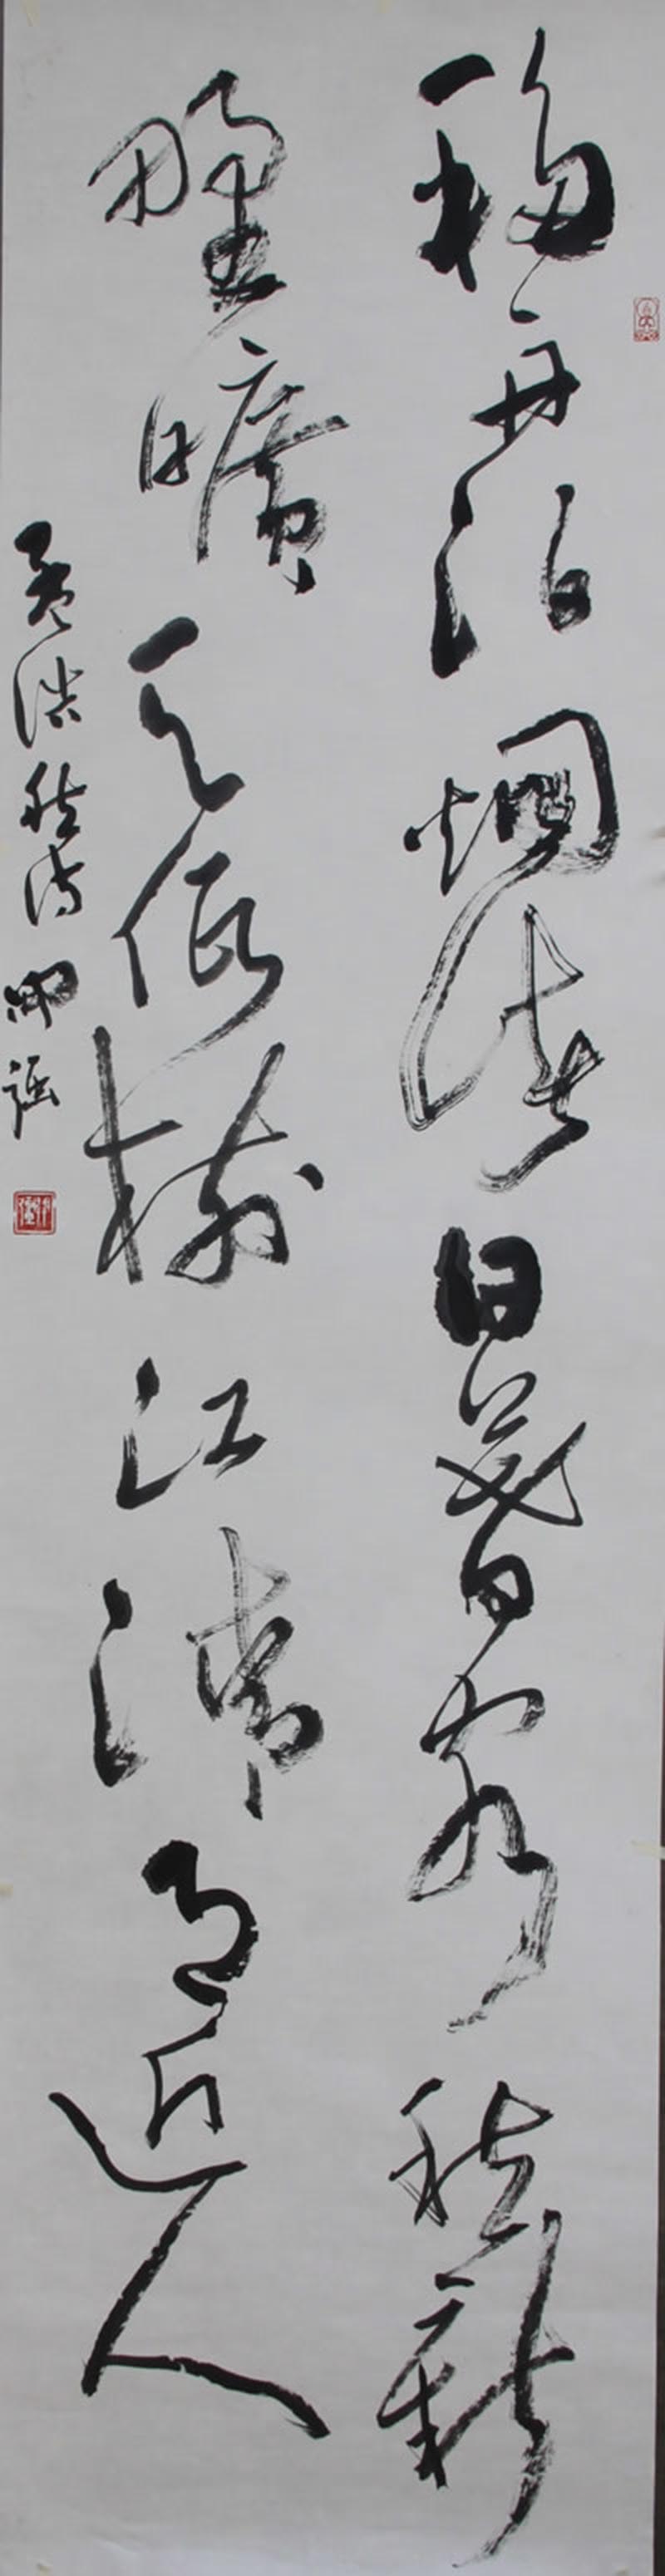 移舟泊烟渚日暮客愁新
野曠天低樹江清月近人
孟浩然诗